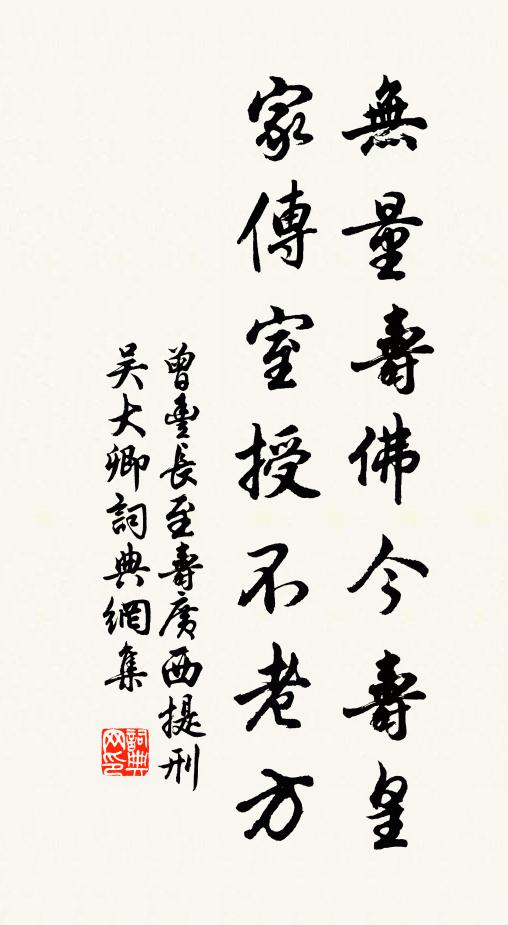 無量壽佛今壽皇
家傳室授不老方
曾豐長至壽廣西提刑
吴大卿詞典網集
詞典网印